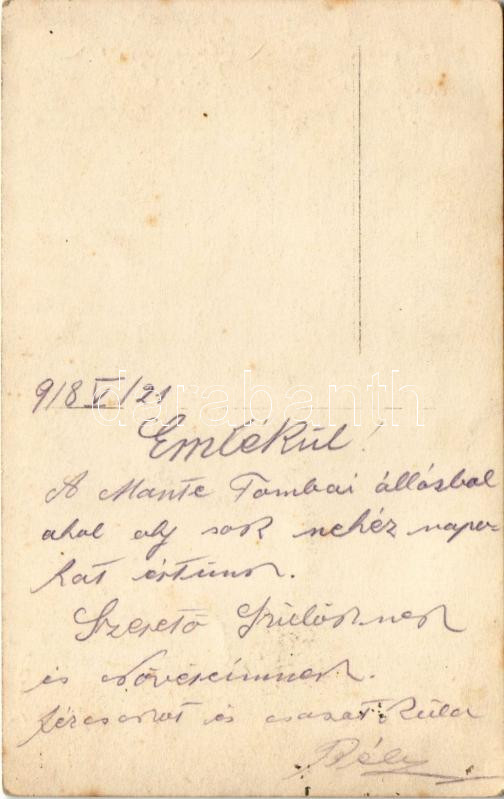 918 V/21
Emlékül!
A Monte Tombai állásból
ahol oly sok nehéz napo-
kat értünk.
Szerető Szülőknek
és Növéreimnek.
kézcsókot és csókot küld
Béla
darabanth